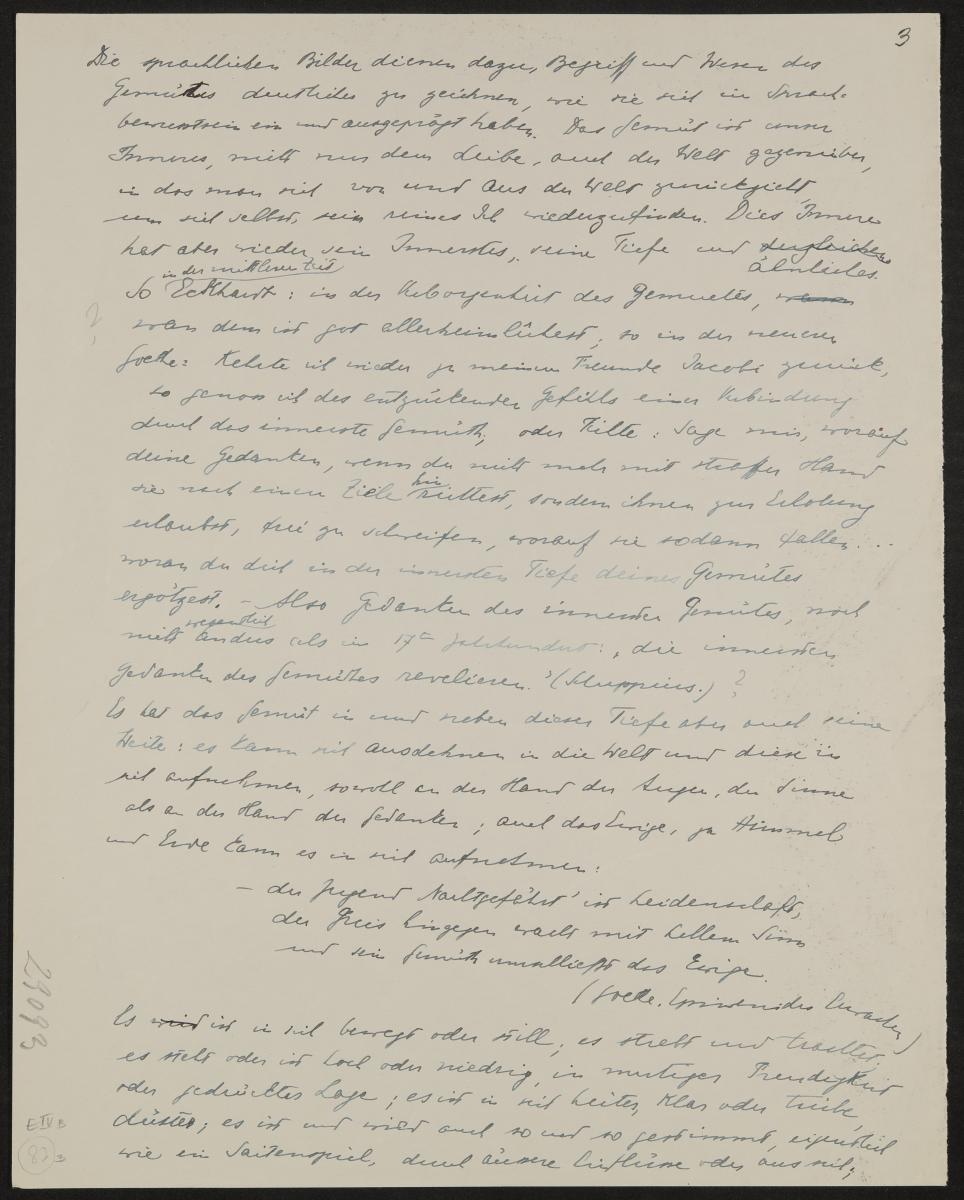 3
Die sprachlichen Bilder dienen dazu, Begriff und Wesen des
Gemütes deutliches zu zeichnen, wie sie sich im Sprach-
bewusstsein ein und ausgeprägt haben. Das Gemüt ist unser
Inneres, nicht nur dem Leibe, auch der Welt gegenüber,
in das man sich von und aus der Welt zurückzieht,
um sich selbst, sein reines Ich wiederzufinden. Dies Innere
hat aber wieder sein Innerstes, seine Tiefe und dergleichen
ähnliches.
in der mittleren Zeit
So Eckhardt: in der Verborgenheit des Gemuetes,
wan dem ist got allerheimlîchest; so in der neueren
Goethe: Kehrte ich wieder zu meinem Freunde Jacobi zurück,
so genoss ich des entzückenden Gefühls einer Verbindung
durch das innerste Gemüth; oder Tille: Sage mir, worauf
deine Gedanken, wenn du nicht mehr mit straffer Hand
sie nach einem Ziele hin richtest, sondern ihnen zur Erholung
erlaubst, frei zu schweifen, worauf sie sodann fallen...
woran du dich in der innersten Tiefe deines Gemütes
ergötzest. – Also Gedanken des innersten Gemütes, noch
wesentlich
nicht anders als im 17ten Jahrhundert: "die innersten
Gedanken des Gemütes revelieren." (Schuppius.) ?
Es hat das Gemüt in und neben dieser Tiefe aber auch seine
Weite: es kann sich ausdehnen in die Welt und diese in
sich aufnehmen, sowohl an der Hand der Augen, der Sinne
als an der Hand der Gedanken; auch das Ewige, ja Himmel
und Erde kann es in sich aufnehmen:
– der Jugend Nachtgefährt' ist Leidenschaft,
der Greis hingegen wacht mit hellem Sinn
und sein Gemüth umschliesst das Ewige.
(Goethe. Epimenides Erwachen)
Es wird ist in sich bewegt oder still; es strebt und trachtet,
es steht oder ist hoch oder niedrig, in mutiger Freudigkeit
oder gedrückter Lage; es ist in sich heiter, klar oder trübe,
düster; es ist und wird auch so und so gestimmt, eigentlich
wie ein Saitenspiel, durch äussere Einflüsse oder aus sich;
29093
E IV B
83 3